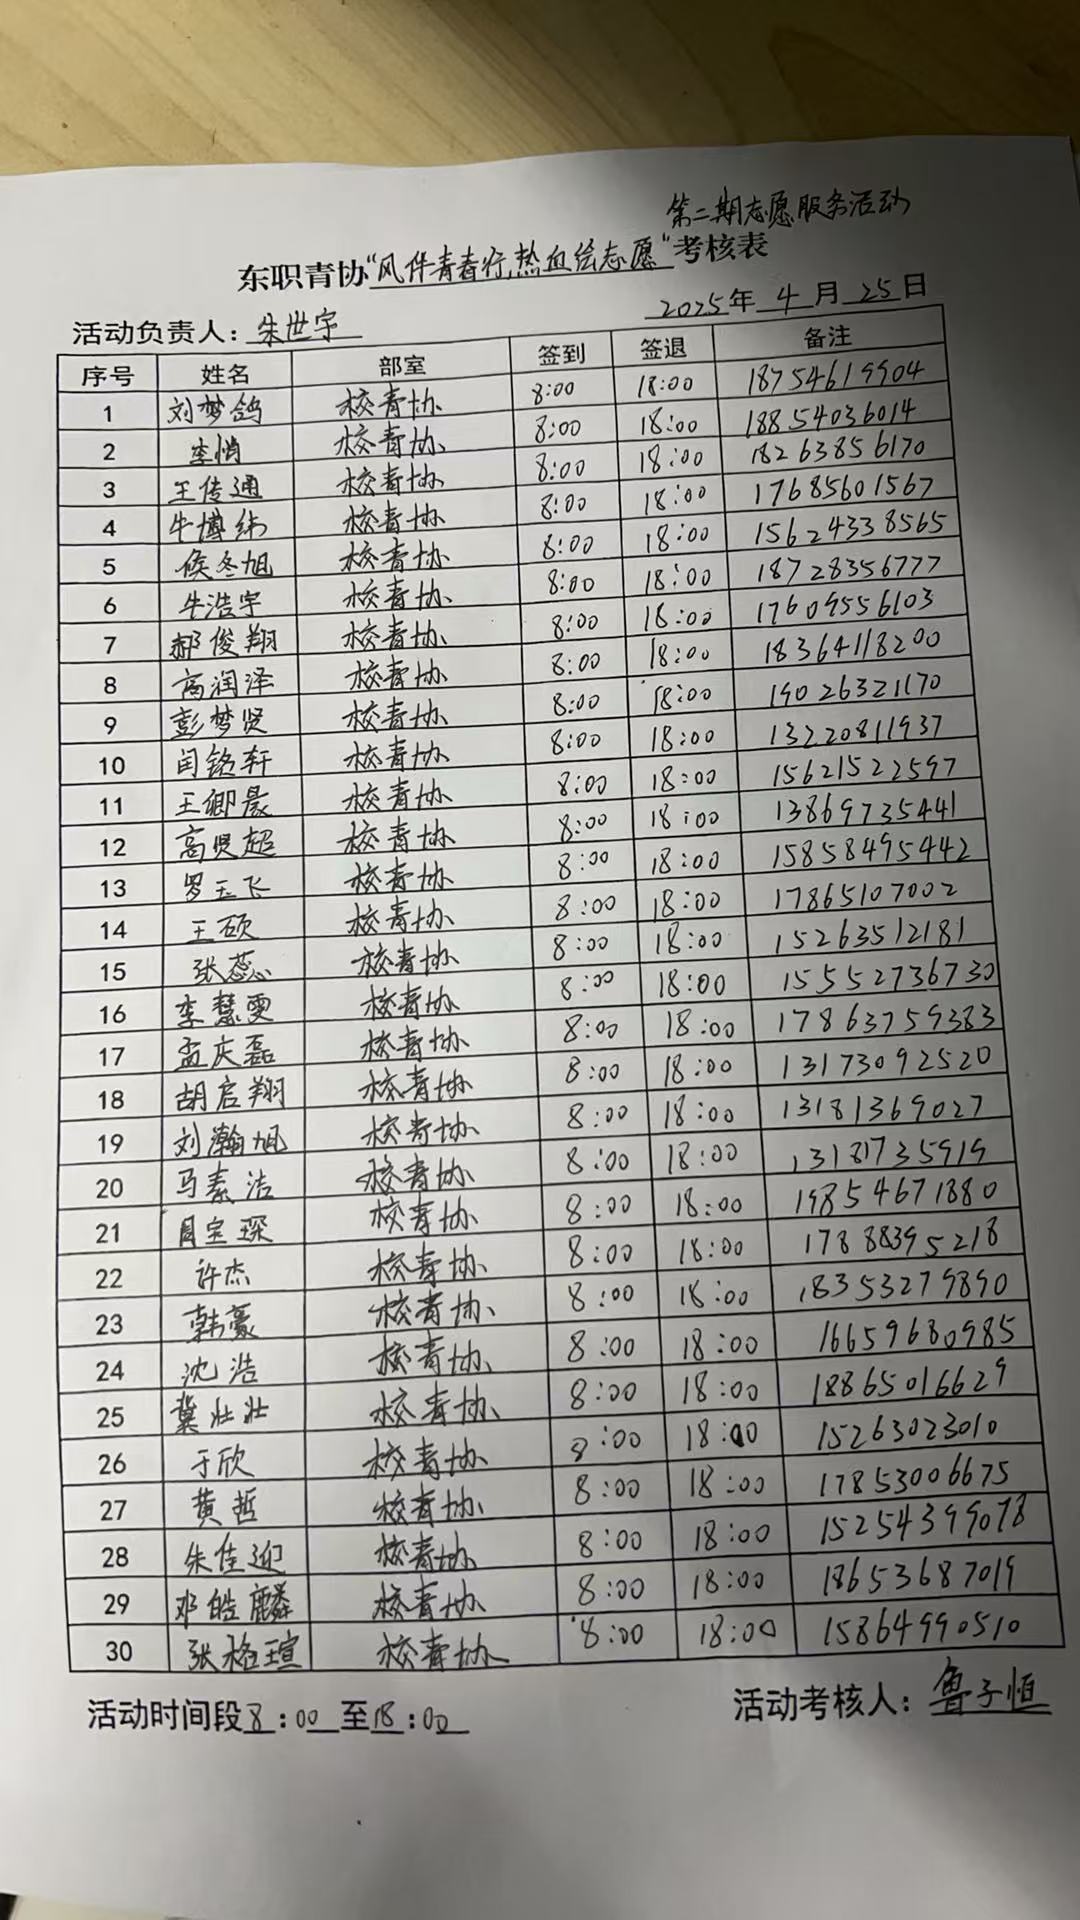 第二期志愿服务活动
东职青协“风伴青春行,热血绘志愿”考核表
活动负责人：朱世宇 2025年4月25日
序号 姓名 部室 签到 签退 备注
1 刘梦鸽 校青协 8:00 18:00 18754619904
2 李悄 校青协 8:00 18:00 18854036014
3 王传通 校青协 8:00 18:00 18263856170
4 牛博纬 校青协 8:00 18:00 17685601567
5 侯冬旭 校青协 8:00 18:00 15624338565
6 牛浩宇 校青协 8:00 18:00 18728356777
7 郝俊翔 校青协 8:00 18:00 17609556103
8 高润泽 校青协 8:00 18:00 18364118200
9 彭梦贤 校青协 8:00 18:00 19026321170
10 闫铭轩 校青协 8:00 18:00 13220811937
11 王卿晨 校青协 8:00 18:00 15621522597
12 高贤超 校青协 8:00 18:00 13869735441
13 罗玉飞 校青协 8:00 18:00 15858495442
14 王硕 校青协 8:00 18:00 17865107002
15 张蕊 校青协 8:00 18:00 15263512181
16 李慧雯 校青协 8:00 18:00 15552736730
17 孟庆磊 校青协 8:00 18:00 17863759383
18 胡启翔 校青协 8:00 18:00 13173092520
19 刘瀚旭 校青协 8:00 18:00 13181369027
20 马素洁 校青协 8:00 18:00 13181735919
21 宝琛 校青协 8:00 18:00 19854671880
22 许杰 校青协 8:00 18:00 17888395218
23 韩豪 校青协 8:00 18:00 18353279890
24 沈浩 校青协 8:00 18:00 16659680985
25 冀壮壮 校青协 8:00 18:00 18865016629
26 于欣 校青协 8:00 18:00 15263023010
27 黄哲 校青协 8:00 18:00 17853006675
28 朱佳迎 校青协 8:00 18:00 15254399078
29 邓皓麟 校青协 8:00 18:00 18653687019
30 张格瑄 校青协 8:00 18:00 15864990510
活动时间段8:00至18:00 活动考核人：鲁子恒